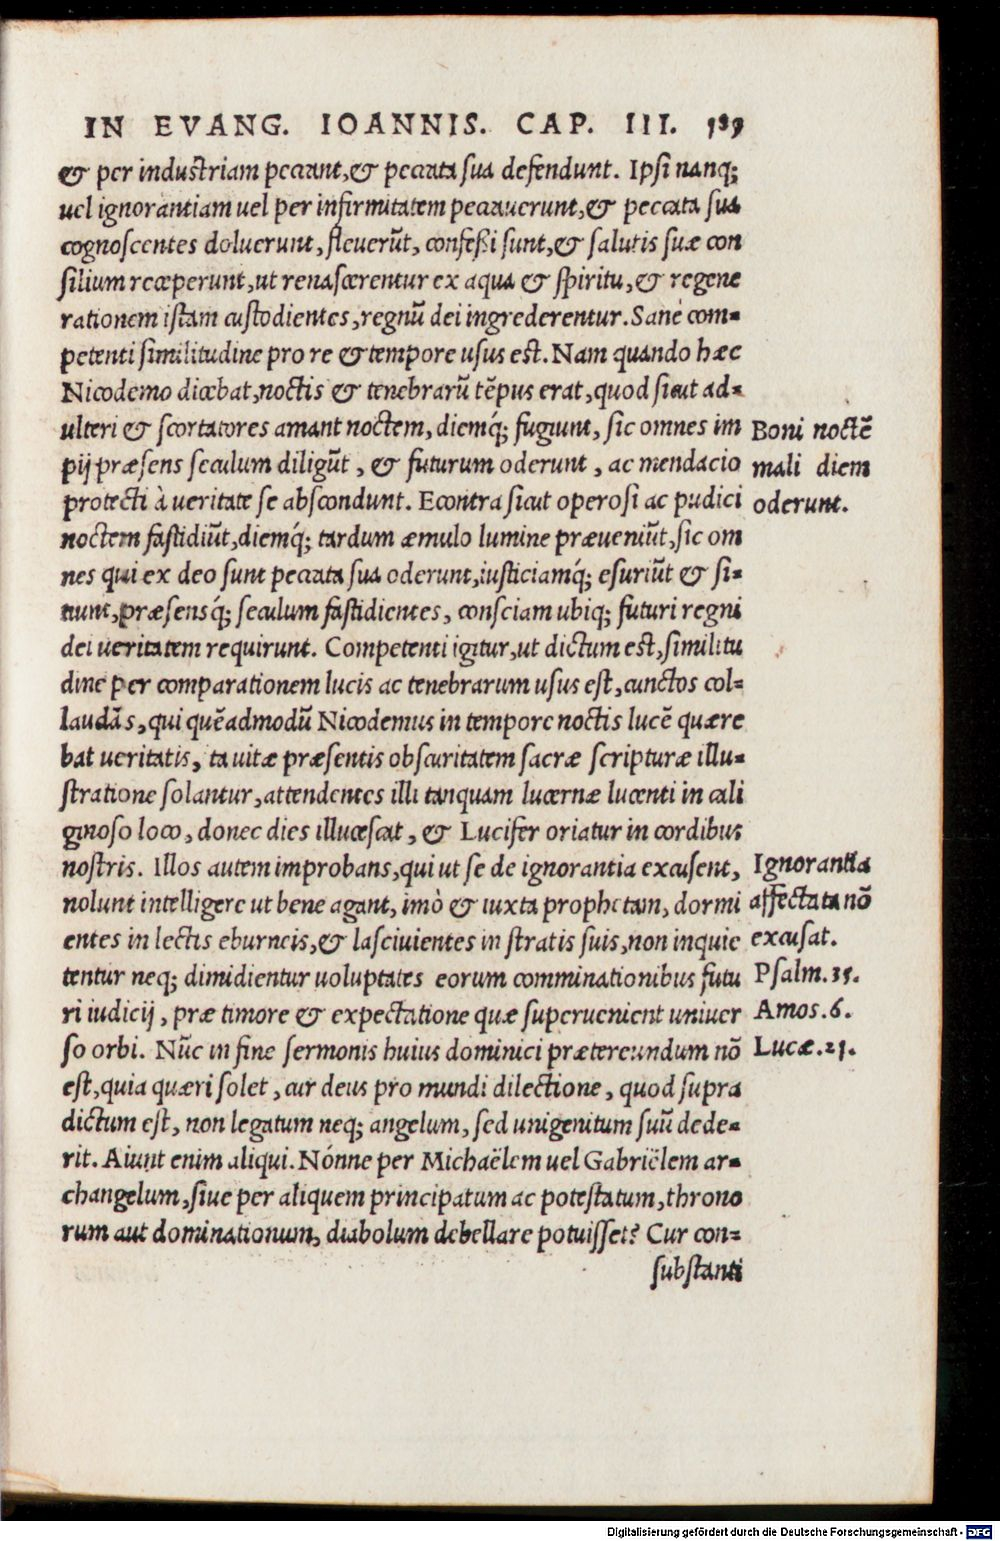 IN EVANG. IOANNIS. CAP. III. 189
& per industriam peccant, & peccata sua defendunt. Ipsi nanq;
uel ignorantiam uel per infirmitatem peccauerunt, & peccata sua
cognoscentes doluerunt, fleuerūt, confeßi sunt, & salutis suæ con
silium receperunt, ut renascerentur ex aqua & spiritu, & regene
rationem istam custodientes, regnū dei ingrederentur. Sanè com-
petenti similitudine pro re & tempore usus est. Nam quando hæc
Nicodemo dicebat, noctis & tenebrarū tēpus erat, quod sicut ad-
ulteri & scortatores amant noctem, diemq́; fugiunt, sic omnes im
pij præsens seculum diligūt, & futurum oderunt, ac mendacio
protecti à ueritate se abscondunt. Econtra sicut operosi ac pudici
noctem fastidiūt, diemq́; tardum æmulo lumine præueniūt, sic om
nes qui ex deo sunt peccata sua oderunt, iusticiamq́; esuriūt & si-
tiunt, præsensq́; seculum fastidientes, consciam ubiq; futuri regni
dei ueritatem requirunt. Competenti igitur, ut dictum est, similitu
dine per comparationem lucis ac tenebrarum usus est, cunctos col-
laudās, qui quēadmodū Nicodemus in tempore noctis lucē quære
bat ueritatis, ta uitæ præsentis obscuritatem sacræ scripturæ illu-
stratione solantur, attendentes illi tanquam lucernæ lucenti in cali
ginoso loco, donec dies illucescat, & Lucifer oriatur in cordibus
nostris. Illos autem improbans, qui ut se de ignorantia excusent,
nolunt intelligere ut bene agant, imò & iuxta prophetam, dormi
entes in lectis eburneis, & lasciuientes in stratis suis, non inquie
tentur neq; dimidientur uoluptates eorum comminationibus futu
ri iudicij, præ timore & expectatione quæ superuenient uniuer
so orbi. Nūc in fine sermonis huius dominici prætereundum nō
est, quia quæri solet, cur deus pro mundi dilectione, quod supra
dictum est, non legatum neq; angelum, sed unigenitum suū dede-
rit. Aiunt enim aliqui. Nónne per Michaëlem uel Gabriëlem ar-
changelum, siue per aliquem principatum ac potestatum, throno
rum aut dominationum, diabolum debellare potuisset? Cur con-
substanti
Boni noctē
mali diem
oderunt.
Ignorantia
affectata nō
excusat.
Psalm. 35.
Amos. 6.
Lucæ. 21.
Digitalisierung gefördert durch die Deutsche Forschungsgemeinschaft - DFG